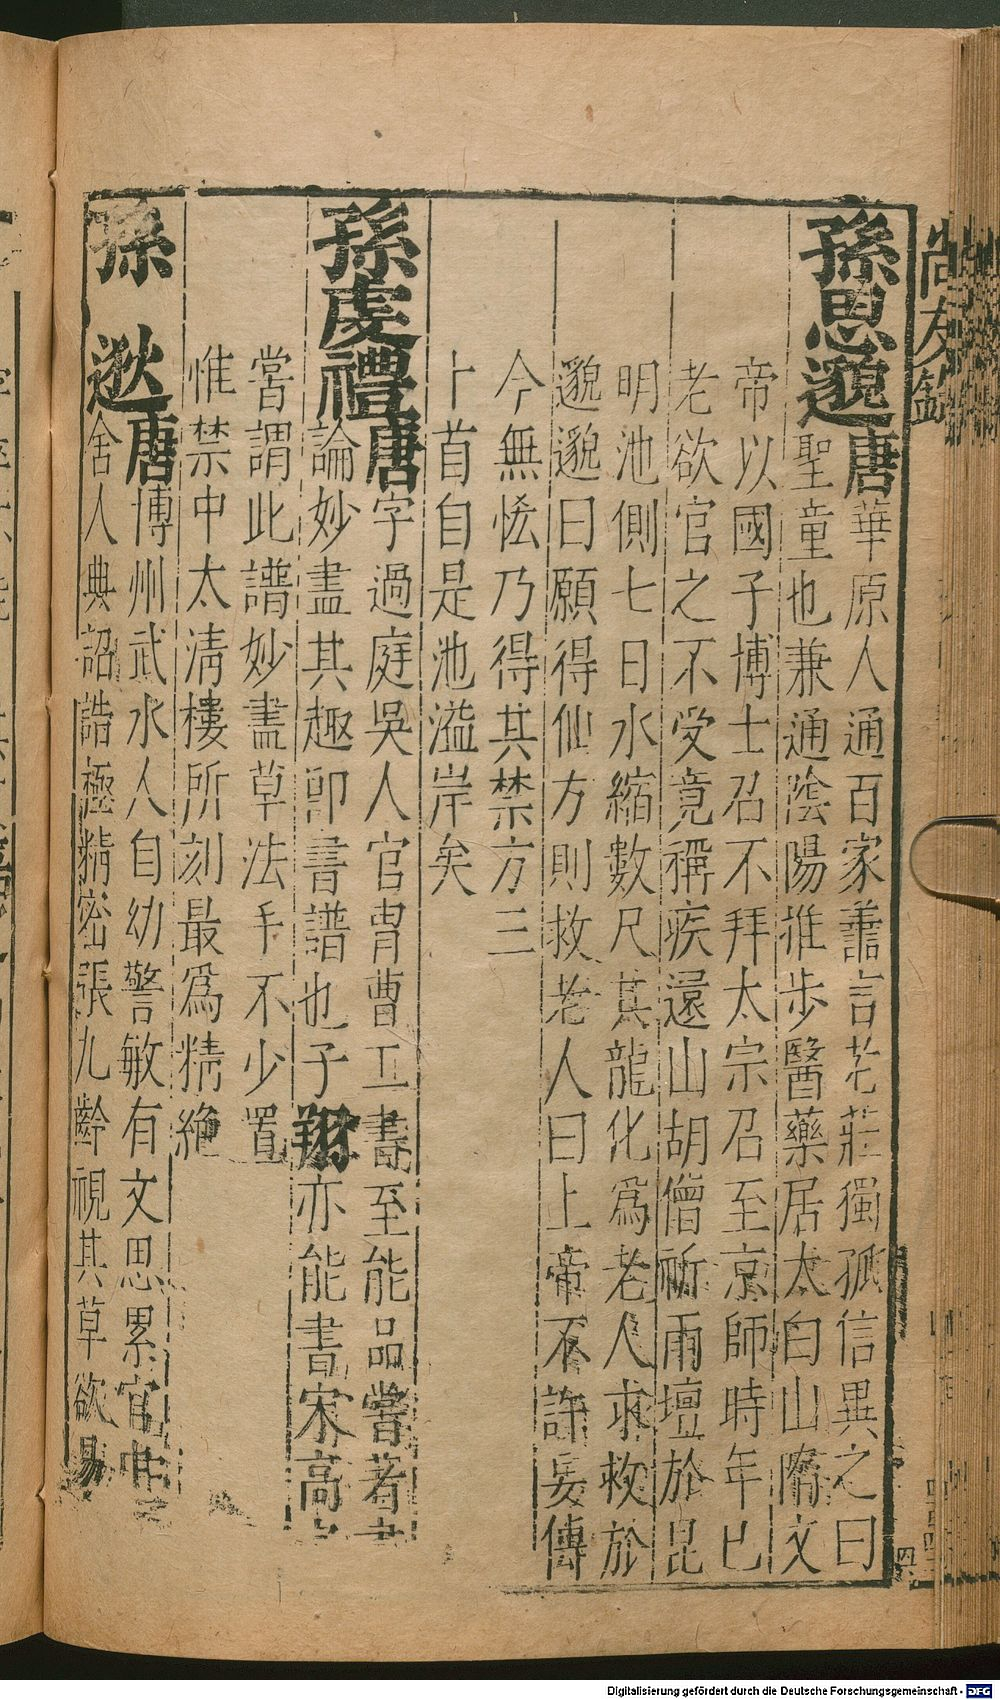 尚友錄
孫思邈唐華原人通百家善言老莊獨孤信異之曰
聖童也兼通陰陽推步醫藥居太白山隋文
帝以國子博士召不拜太宗召至京師時年已
老欲官之不受竟稱疾還山胡僧祈雨壇於昆
明池側七日水縮數尺其龍化為老人求救於
邈邈曰願得仙方則救老人曰上帝不許妄傳
今無恡乃得其禁方三
十首自是池溢岸矣
孫虔禮唐字過庭吳人官胄曹工書至能品嘗著書
論妙盡其趣卽書譜也子翔亦能書宋高
嘗謂此譜妙盡草法手不少置
惟禁中太清樓所刻最爲精絶
孫逖唐博州武水人自幼警敏有文思累官中書
舍人典詔誥極精密張九齡視其草欲易
Digitalisierung gefördert durch die Deutsche Forschungsgemeinschaft - DFG